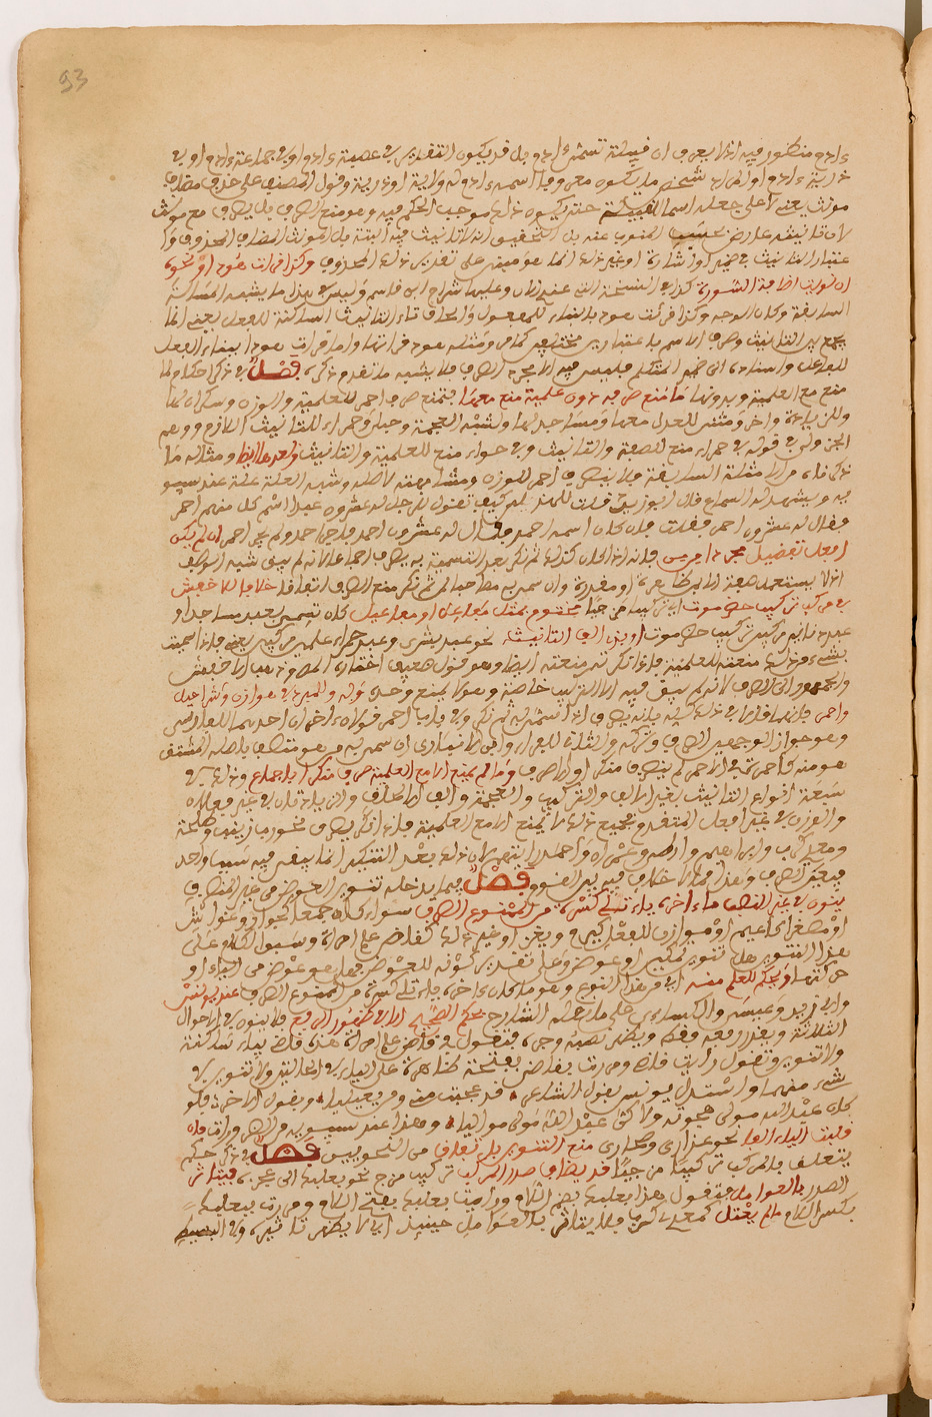 93
منظور فيه اذ لا يعرف ان قبيلة تسمى بل قد يكون التقدير في عصبة او في جماعة او في
شخص ما يكون معروفا اسمه وقول المصنف على حذف مضاف
مونث يعني لا على جعله اسما للقبيلة حتى يكون ذلك موجب الحكم فيه وهو منع الصرف بل يصرف مع مونث
عنه بل التحقيق انه لا تانيث فيه البتة بل المونث المضاف المحذوف
التانيث في ضمير او اشارة او غير ذلك انما هو مبني على تقدير ذلك المحذوف وكذا قرات هود او نحوه
ان نويت اضافة السورة كذا في النسخة التي عندي وعليها شراح ابن قاسم وليس في هذا ما يشبه المسالة
السابقة وكان الوجه وكذا قرئت هود بالبناء للمفعول والحاق تاء التانيث الساكنة للفعل يعني انما
التانيث وصرف الاسم باعتبارين مختلفين كما مر ومثله هود قراتها واما قرات هودا ببناء الفعل
للفاعل واسناده الى ضمير المتكلم فليس فيه الا مجرد الصرف فلا يشبه ما تقدم ذكره فصل في ذكر احكام
منع مع العلمية وبدونها ما منع صرفه دون علمية منع معها فتمنع صرف احمر للعلمية والوزن وسكران لها
وللزيادة واخر ومثنى للعدل معها ومساجد لها ولشبه العجمة وحبلى وحمراء للتانيث اللازم ووهم
في قوله في حمراء منع للصفة والتانيث وفي حواء منع للعلمية والتانيث وبعدها ايضا ومثاله ما
ذكرناه من الامثلة السابقة فلا ينصرف احمر للوزن ومشابهته لاصله وشبه العلة علة عند سيبو
يه ويشهد له السماع قال ابو زيد قلت للهذلي كيف تقول لرجل له عشرون عبدا اسم كل منهم احمر
فقال له عشرون احمر فقلت فان كان اسمه احمد فقال له عشرون احمد فاجرى احمد ولم يجر احمر ان لم يكن
افعل تفضيل مجردا من من فانه اذا كان كذلك ثم نكر بعد التسمية به يصرف اجماعا لانه لم يبق شبه الوصف
اذ لا يستعمل صفة الا بمن ظاهرة او مقدرة وان سمي به مصاحبا لمن ثم نكر منع الصرف اتفاقا خلافا للاخفش
في مركب تركيب حضرموت مختوم بمثل مفاعل او مفاعيل كان تسمي بعبد مساجد او
مركب تركيب حضرموت او بذي الف التانيث نحو عبد بشرى وعبد حمراء علمين مركبين يعني فاذا سميت
بشيء من ذلك منعته للعلمية فاذا نكرته منعته ايضا وهو قول ضعيف
والجمهور الى الصرف لانه لم يبق فيه الا التركيب خاصة وهو لا يمنع وحده وله وللمبرد في هوازن وشراحيل
واحمر فانهما قالا في ذلك كله بانه يصرف اذا سمي به ثم نكر وفي باب احمر قولان اخران احدهما للفارسي
وهو جواز الوجهين الصرف وتركه والثاني للفراء وابن الانباري ان سمي به من هو متصف باصله المشتق
هو منه كاحمر في الاحمر لم ينصرف منكرا والا صرف وما لم يمنع الا مع العلمية صرف منكرا باجماع وذلك في
سبعة انواع التانيث بغير الالف والتركيب والعجمة والف الالحاق والزيادتان في غير فعلان
والوزن في غير افعل المتقدم فجميع ذلك لا يمنع الا مع العلمية فاذا نكر يصرف نحو رب زينب وطلحة
ومعدي كرب وابراهيم وارطى وعمران واحمد انتهى لان ذلك بعد التنكير انما يبقى فيه سبب واحد
فيتعين الصرف وهذا مما لا خلاف فيه بين القوم فصل فيما يدخله تنوين العوض من غير المنصرف
ينون في غير النصب ما اخره ياء تلي كسرة من الممنوع الصرف سواء كان جمعا كجوار وغواش
او مصغرا كاعيم او موازن للفعل كيرمي ويغزي او غير ذلك كقاض علم امراة وسبق الكلام على
هذا التنوين هل هو تنوين تمكين او عوض وعلى تقدير كونه للعوض فهل هو عوض من الياء او
حركتها ويحكم للعلم منه اي من هذا النوع وهو ما كان اخره ياء تلي كسرة من الممنوع الصرف عند يونس
وابي زيد وعيسى والكسائي على ما الشارح بحكم الصحيح الا في ظهور الرفع فلا ينون في الاحوال
الثلاثة ويقدر رفعه فقط ويظهر نصبه وجره فتقول في قاض علم امراة هذه قاضي بياء ساكنة
ولا تنوين وتقول رايت قاضي ومررت بقاضي بفتحة ظاهرة على الياء في الحالتين ولا تنوين في
شيء منهما واستدل يونس بقول الشاعر قد عجبت مني ومن يعيليا وبقول الاخر فلو
كان عبد الله مولى هجوته ولكن عبد الله مولى مواليا وهذا عند سيبويه من الضرورات فان
قلبت الياء الفا نحو عذارى وصحارى منع التنوين باتفاق من النحويين فصل في ذكر حكم
يتعلق بالمركب تركيبا مزجيا قد يضاف صدر المركب تركيب مزج نحو بعلبك الى عجزه فيتاثر
الصدر بالعوامل فتقول هذا بعلبك بضم اللام ورايت بعلبك بفتح اللام ومررت ببعلبك
بكسر اللام ما لم يعتل كمعدي كرب فلا يتاثر بالعوامل حينئذ اي لا يظهر تاثيره وفي البسيط